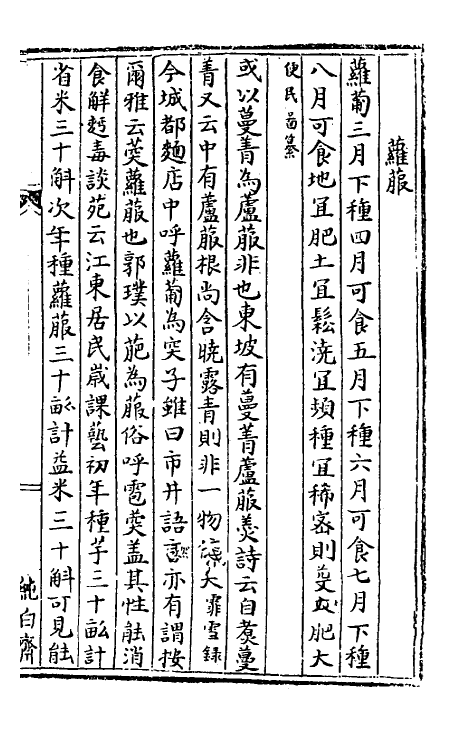 蘿菔
蘿蔔三月下種四月可食五月下種六月可食七月下種
八月可食地宜肥土宜鬆澆宜頻種宜稀密則芟之肥大
便民啚纂
或以蔓菁為蘆菔非也東坡有蔓菁蘆菔羹詩云自煑蔓
菁又云中有蘆菔根尚含曉露青則非一物 天霏雪録
今城都麵店中呼蘿蔔為突子雖曰市井語 亦有謂按
爾雅云葖蘿菔也郭璞以葩為菔俗呼雹葖盖其性能消
食解麪毒談苑云江東居民歳課藝初年種芋三十畝計
省米三十斛次年種蘿菔三十畝計益米三十斛可見能
純白齋